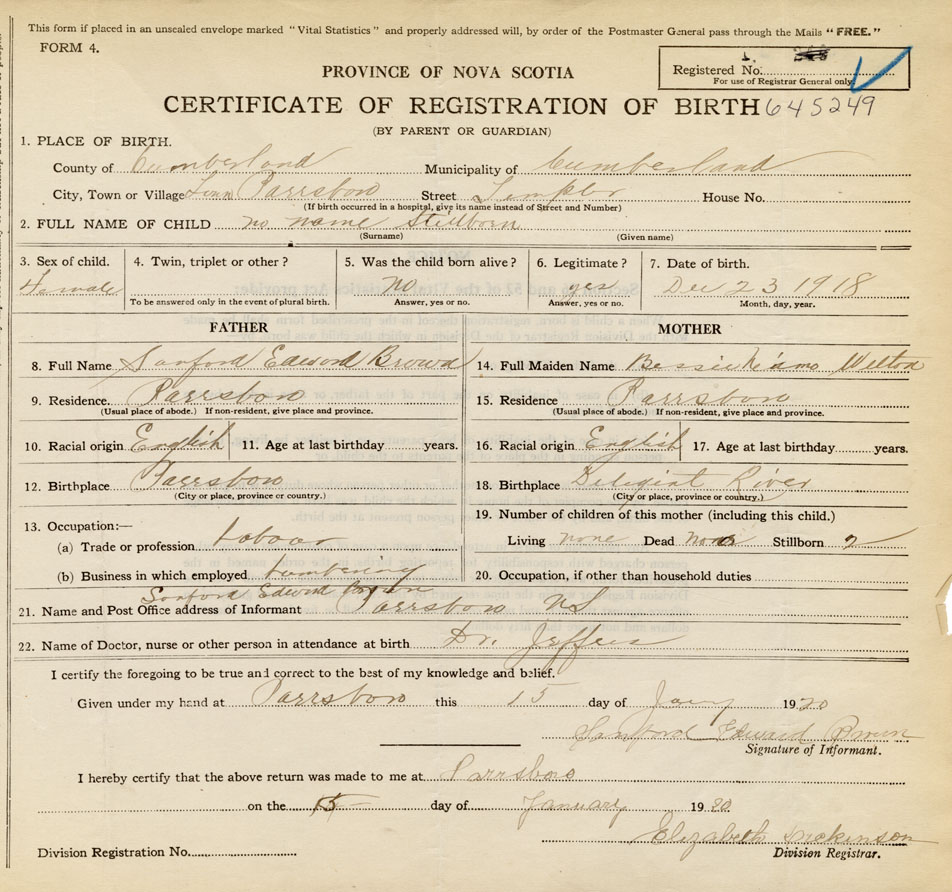 This form if placed in an unsealed envelope marked "Vital Statistics" and properly addressed will, by order of the Postmaster General pass through the Mails "FREE."
FORM 4.
Registered No.
For use of Registrar General only.
PROVINCE OF NOVA SCOTIA
CERTIFICATE OF REGISTRATION OF BIRTH 645249
(BY PARENT OR GUARDIAN)
1. PLACE OF BIRTH.
County of Cumberland Municipality of Cumberland
City, Town or Village Town Parrsboro Street House No.
(If birth occurred in a hospital, give its name instead of Street and Number)
2. FULL NAME OF CHILD no name Stillborn
(Surname) (Given name)
3. Sex of child. 4. Twin, triplet or other? 5. Was the child born alive? 6. Legitimate? 7. Date of birth.
Female No yes Dec 23 1918
To be answered only in the event of plural birth. Answer, yes or no. Answer, yes or no. Month, day, year.
FATHER MOTHER
8. Full Name Sanford Edward Brown 14. Full Maiden Name Bessie Welton
9. Residence. Parrsboro 15. Residence Parrsboro
(Usual place of abode.) If non-resident, give place and province. (Usual place of abode.) If non-resident, give place and province.
10. Racial origin English 11. Age at last birthday years. 16. Racial origin English 17. Age at last birthday years.
12. Birthplace Parrsboro 18. Birthplace River
(City or place, province or country.) (City or place, province or country.)
13. Occupation:— 19. Number of children of this mother (including this child.)
(a) Trade or profession Living none Dead none Stillborn 2
(b) Business in which employed lumbering 20. Occupation, if other than household duties
Sanford Edward Brown
21. Name and Post Office address of Informant Parrsboro NS
22. Name of Doctor, nurse or other person in attendance at birth Dr. Jeffers
I certify the foregoing to be true and correct to the best of my knowledge and belief.
Given under my hand at Parrsboro this 15 day of Jany 1920
Sanford Edward Brown
Signature of Informant.
I hereby certify that the above return was made to me at Parrsboro
on the 15 day of January 1920
Elizabeth Dickinson
Division Registration No. Division Registrar.